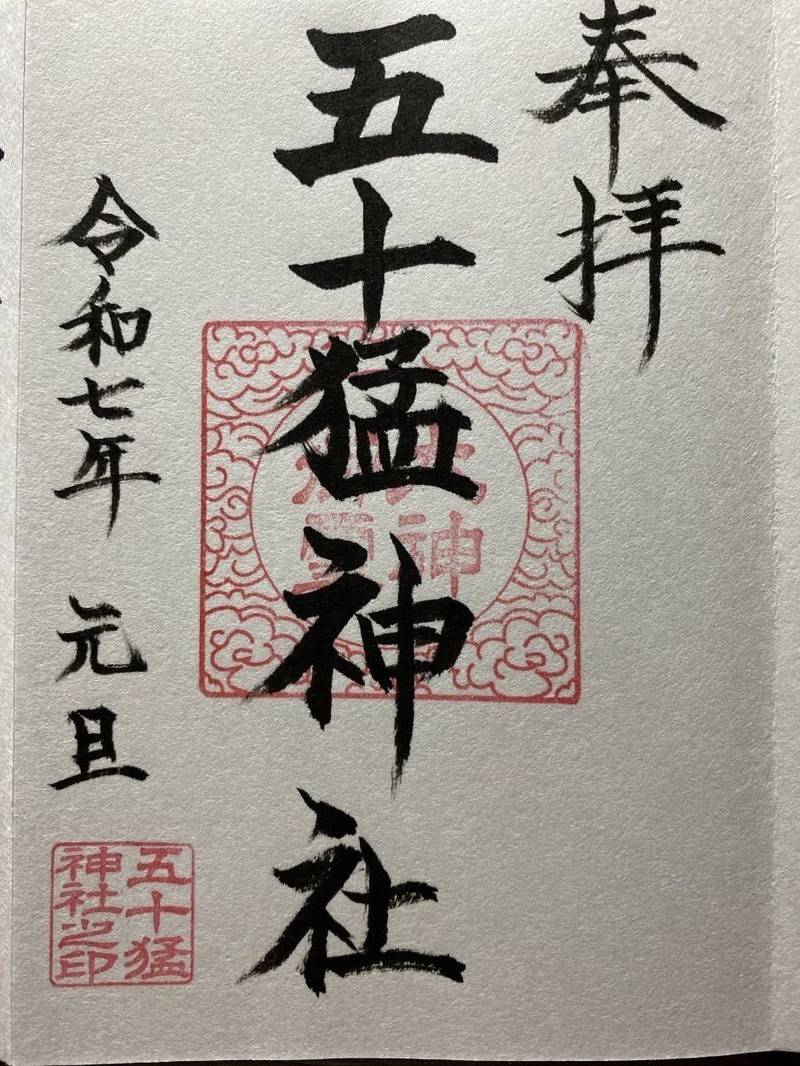 奉拝
五十猛神社
令和七年 元旦
五十猛
神社之印